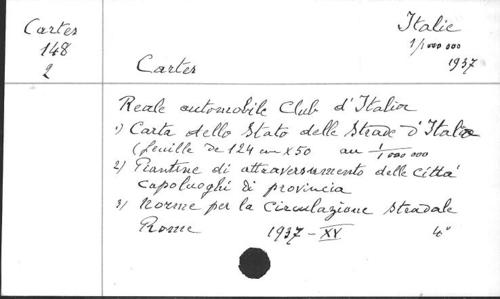 Cartes
148
2
Italie
1/1000 000
1937
Cartes
Reale automobile Club d'Italia
1) Carta dello Stato delle Strade d'Italia
(feuille de 124 cm x 50 au 1/1000 000
2) Piantine di attraversamento delle città
capoluoghi di provincia
3) Norme per la Circulazione stradale
Rome 1937 - XV 4°